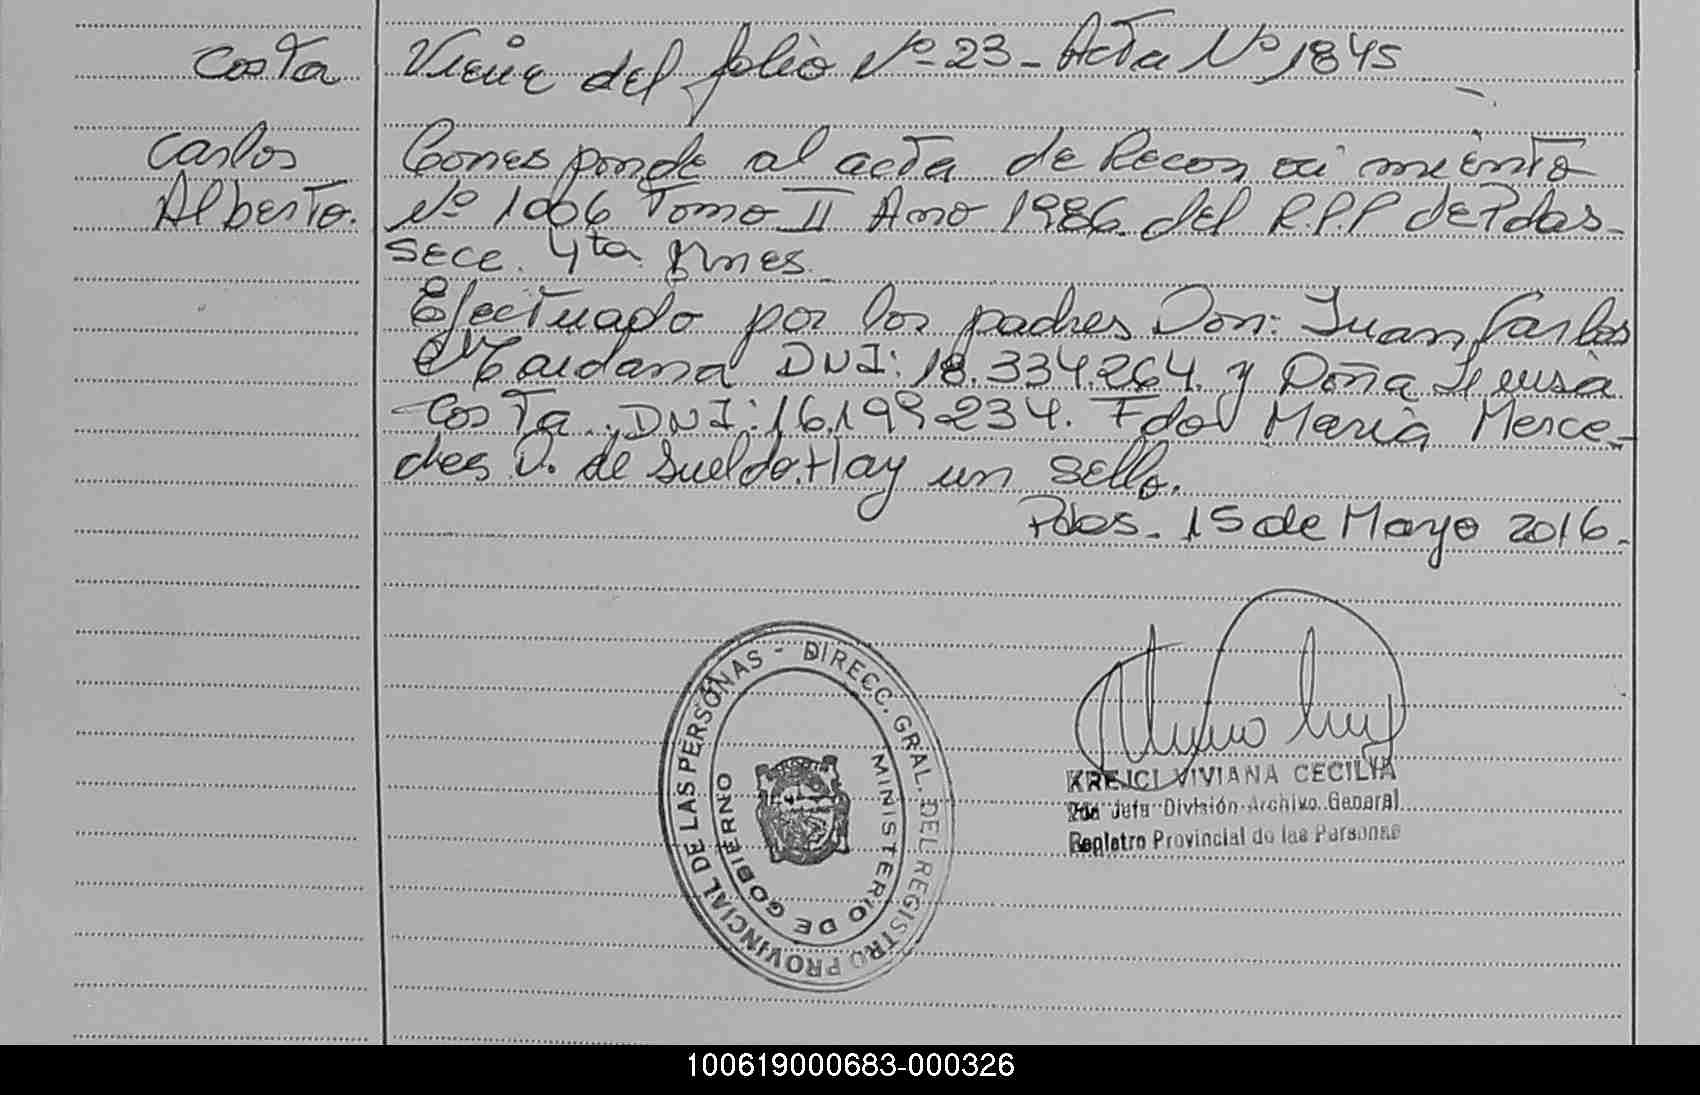 Costa
Carlos
Alberto.
Viene del folio Nº 23 - Acta Nº 1845
Corresponde al acta de Reconocimiento
Nº 1006 Tomo II Año 1986 del R.P.P de Pdas-
secc. 4ta Mnes.
Efectuado por los padres Don: Juan Carlos
Maidana DNI: 18.334.264. y Doña
Costa. DNI: 16.199.234. Fdo María Merce-
des V. de Sueldo. Hay un sello.
Pdas. 15 de Mayo 2016.
DIRECC. GRAL. DEL REGISTRO PROVINCIAL DE LAS PERSONAS -
MINISTERIO DE GOBIERNO
KREJCI VIVIANA CECILIA
2da Jefa División Archivo General
Registro Provincial de las Personas
100619000683-000326